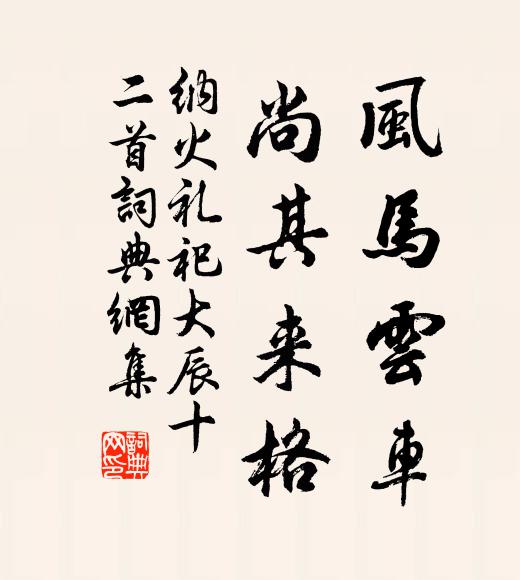 風馬雲車
尚其来格
納火礼祀大辰十
二首詞典網集
詞典
网印